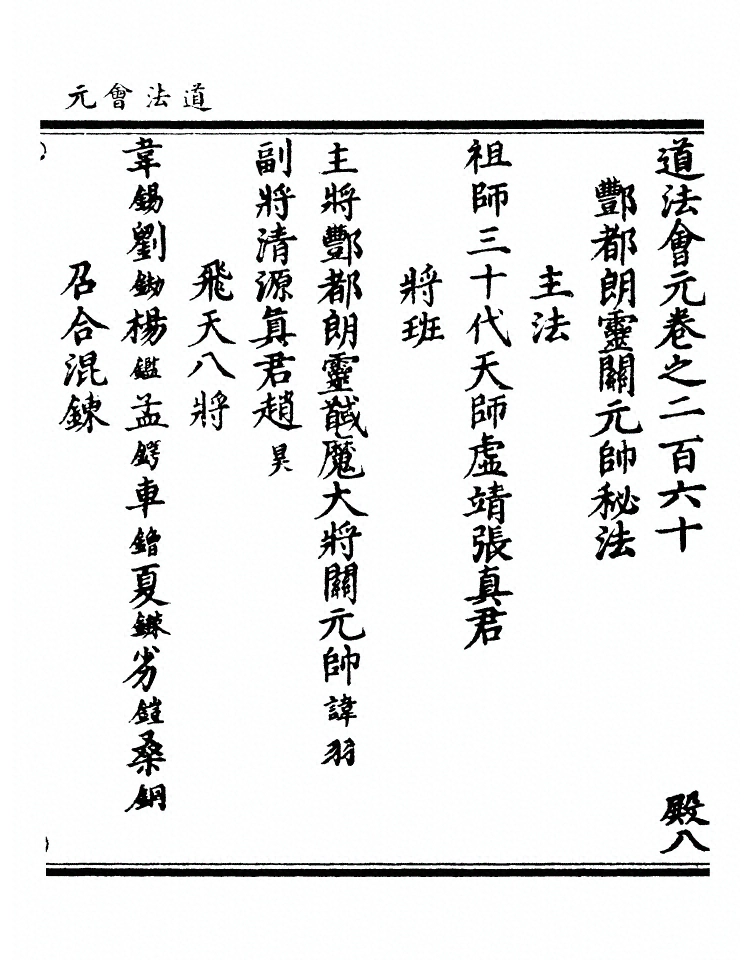 道法會元
道法會元卷之二百六十 殿八
酆都朗靈關元帥秘法
主法
祖師三十代天師虛靖張真君
將班
主將酆都朗靈馘魔大將關元帥諱羽
副將清源真君趙昊
飛天八將
韋錫劉鋤楊鑑孟鍔車鐕夏鏁劣鎧桑鋼
召合混鍊